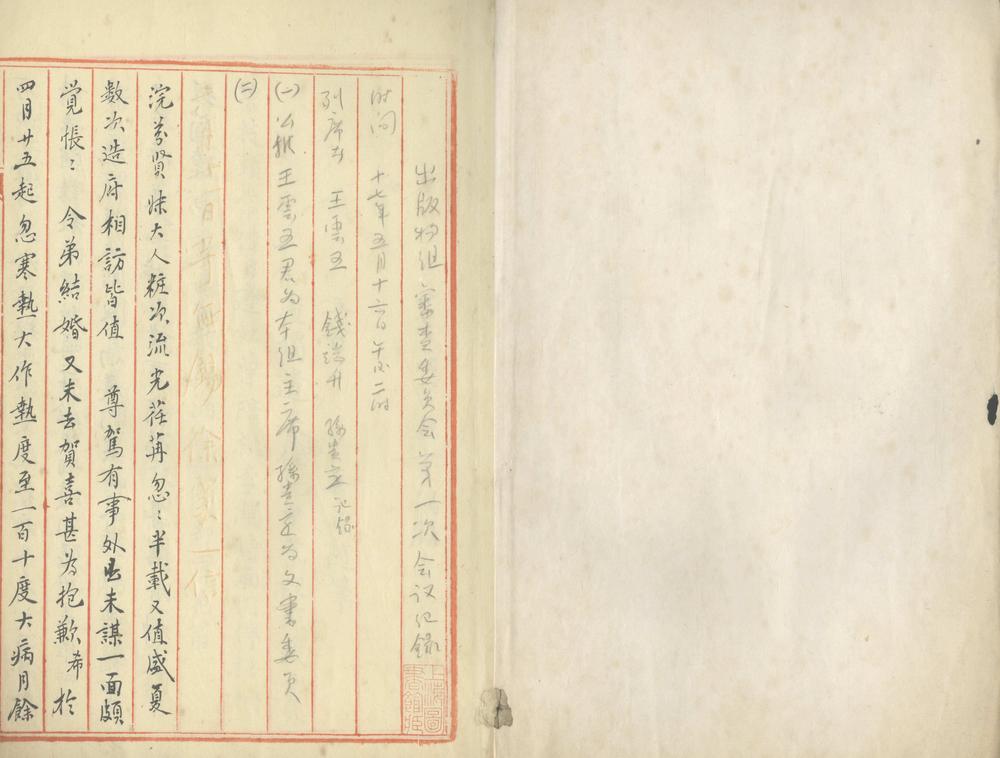 出版物组审查委员会第一次会议纪录
时间 十七年五月十六日午后二时
列席者 王雲五 錢端升 孫貴定 记録
(一)公推王雲五君为本组主席孫貴定为文書委員
(二)
浣芬賢妹大人粧次流光荏苒忽:半載又值盛夏
数次造府相訪皆值 尊駕有事外出未謀一面頗
覺悵: 令弟結婚又未去賀喜甚为抱歉希於
四月廿五起忽寒熱大作熱度至一百十度大病月餘